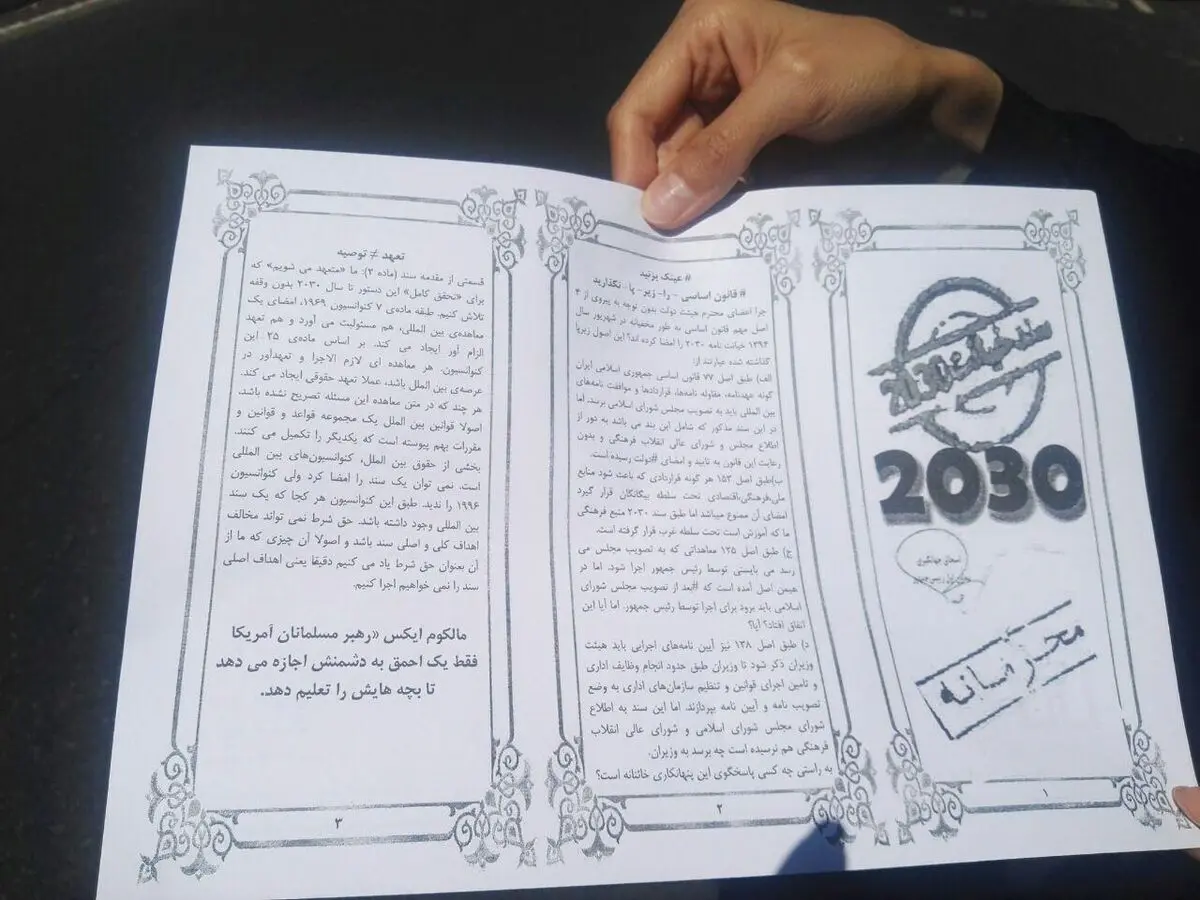 سند خیانت 2030
2030
اسحاق جهانگیری
محرمانه
۱
# عینک بزنید
# قانون اساسی – را– زیر – پا – نگذارید
چرا اعضای محترم هیئت دولت بدون توجه به پیروی از ۴
اصل مهم قانون اساسی به طور مخفیانه در شهریور سال
۱۳۹۴ خیانت نامه ۲۰۳۰ را امضا کرده اند؟ این اصول زیرپا
گذاشته شده عبارتند از:
الف) طبق اصل ۷۷ قانون اساسی جمهوری اسلامی ایران
گونه عهدنامه، مقاوله نامه‌ها، قراردادها و موافقت نامه‌های
بین المللی باید به تصویب مجلس شورای اسلامی برسد. اما
در این سند مذکور که شامل این بند می باشد به دور از
اطلاع مجلس و شورای عالی انقلاب فرهنگی و بدون
رعایت این قانون به تایید و امضای #دولت رسیده است.
ب)طبق اصل ۱۵۳ هر گونه قراردادی که باعث شود منابع
ملی،فرهنگی،اقتصادی تحت سلطه بیگانگان قرار گیرد
امضای آن ممنوع میباشد اما طبق سند ۲۰۳۰ منبع فرهنگی
ما که آموزش است تحت سلطه غرب قرار گرفته است.
ج) طبق اصل ۱۲۵ معاهداتی که به تصویب مجلس می
رسد می بایستی توسط رئیس جمهور اجرا شود. اما در
همین اصل آمده است که #بعد از تصویب مجلس شورای
اسلامی باید برود برای اجرا توسط رئیس جمهور. اما آیا این
اتفاق افتاد؟ آیا؟
د) طبق اصل ۱۳۸ نیز آیین نامه‌های اجرایی باید هیئت
وزیران ذکر شود تا وزیران طبق حدود انجام وظایف اداری
و تامین اجرای قوانین و تنظیم سازمان‌های اداری به وضع
تصویب نامه و آیین نامه بپردازند. اما این سند به اطلاع
شورای مجلس شورای اسلامی و شورای عالی انقلاب
فرهنگی هم نرسیده است چه برسد به وزیران.
به راستی چه کسی پاسخگوی این پنهانکاری خائنانه است؟
۲
تعهد ≠ توصیه
قسمتی از مقدمه سند (ماده ۲): ما «متعهد می شویم» که
برای «تحقق کامل» این دستور تا سال ۲۰۳۰ بدون وقفه
تلاش کنیم. طبقه ماده‌ی ۷ کنوانسیون ۱۹۶۹، امضای یک
معاهده‌ی بین المللی، هم مسئولیت می آورد و هم تعهد
الزام آور ایجاد می کند. بر اساس ماده‌ی ۲۵ این
کنوانسیون. هر معاهده ای لازم الاجرا و تعهدآور در
عرصه‌ی بین الملل باشد، عملا تعهد حقوقی ایجاد می کند.
هر چند که در متن معاهده این مسئله تصریح نشده باشد.
اصولا قوانین بین الملل یک مجموعه قواعد و قوانین و
مقررات بهم پیوسته است که یکدیگر را تکمیل می کنند.
بخشی از حقوق بین الملل، کنوانسیون‌های بین المللی
است. نمی توان یک سند را امضا کرد ولی کنوانسیون
۱۹۹۶ را ندید. طبق این کنوانسیون هر کجا که یک سند
بین المللی وجود داشته باشد. حق شرط نمی تواند مخالف
اهداف کلی و اصلی سند باشد و اصولا آن چیزی که ما از
آن بعنوان حق شرط یاد می کنیم دقیقا یعنی اهداف اصلی
سند را نمی خواهیم اجرا کنیم.
مالکوم ایکس «رهبر مسلمانان آمریکا
فقط یک احمق به دشمنش اجازه می دهد
تا بچه هایش را تعلیم دهد.
۳